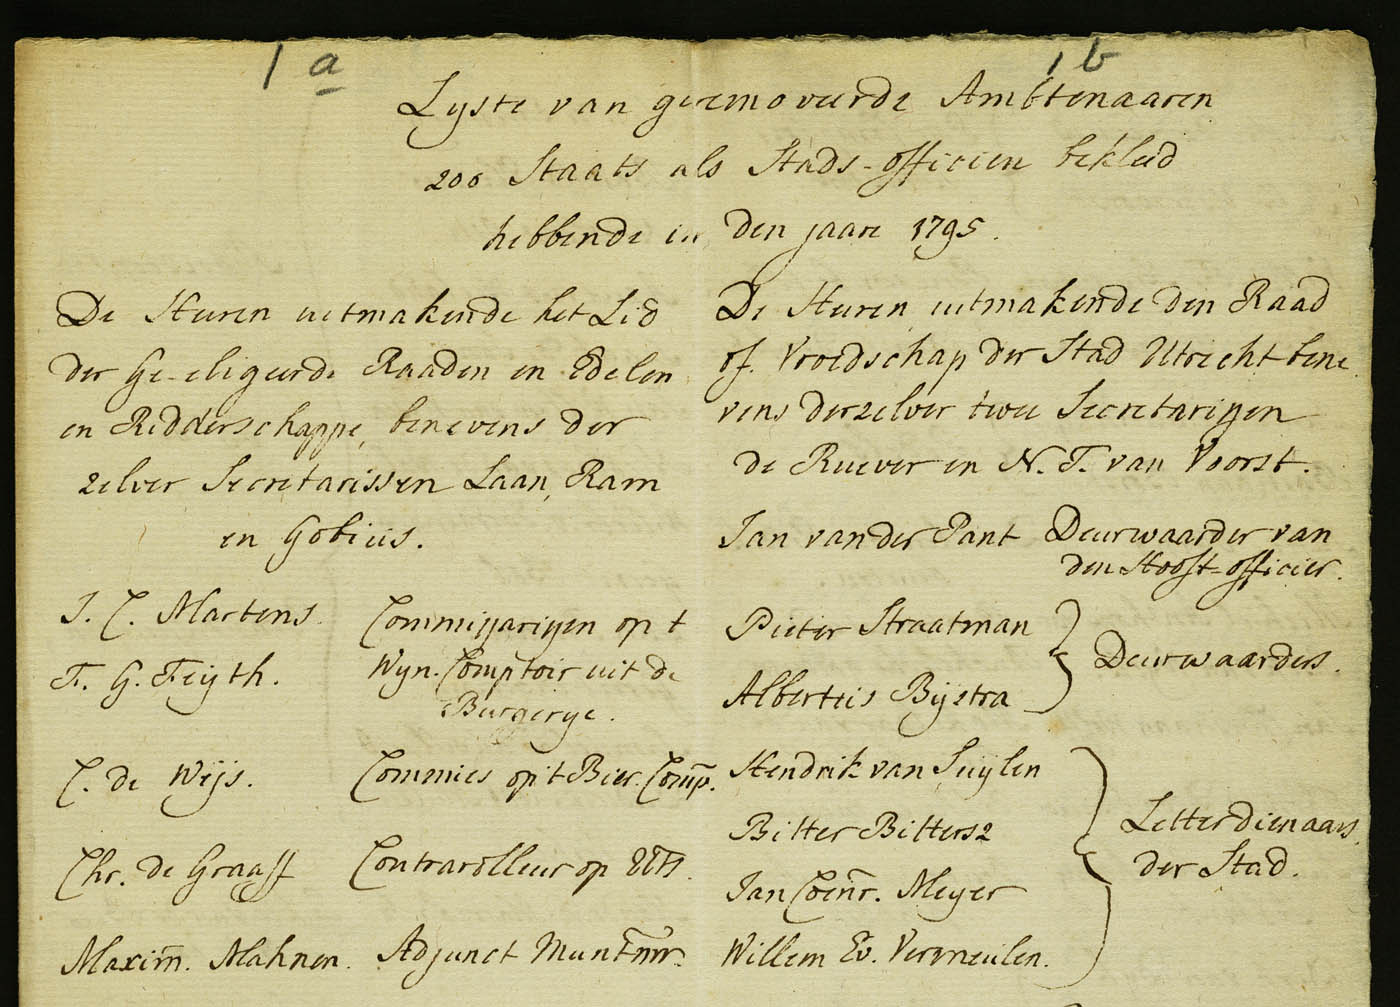 1 a
1 b
Lyste van geremoveerde Ambtenaaren
zoo Staats als Stads-officien bekleed
hebbende in den jaare 1795.
De Heeren uitmakende het Lid
der Ge-eligeerde Raaden en Edelen
en Ridderschappe, benevens der
zelver Secretarissen Laan, Ram
en Gobius.
J. C. Martens
F. G. Feyth.
Commissarissen op t
Wyn-Comptoir uit de
Burgerye.
C. de Wijs. Commies op 't Bier-Comp.
Chr. de Graaff Contrarolleur op
Maxim. Mahnen. Adjunct Muntmr.
De Heeren uitmakende den Raad
of Vroedschap der Stad Utrecht bene
vens derzelver twee Secretarissen
de Ruever en N. F. van Voorst.
Jan van der Pant Deurwaarder van
den Hooft-officier.
Pieter Straatman
Albertus Bijstra
Deurwaarders.
Hendrik van Suijlen
Bitter Bittersz
Jan Coenr. Meyer
Willem Ev. Vermeulen.
Letterdienaars
der Stad.